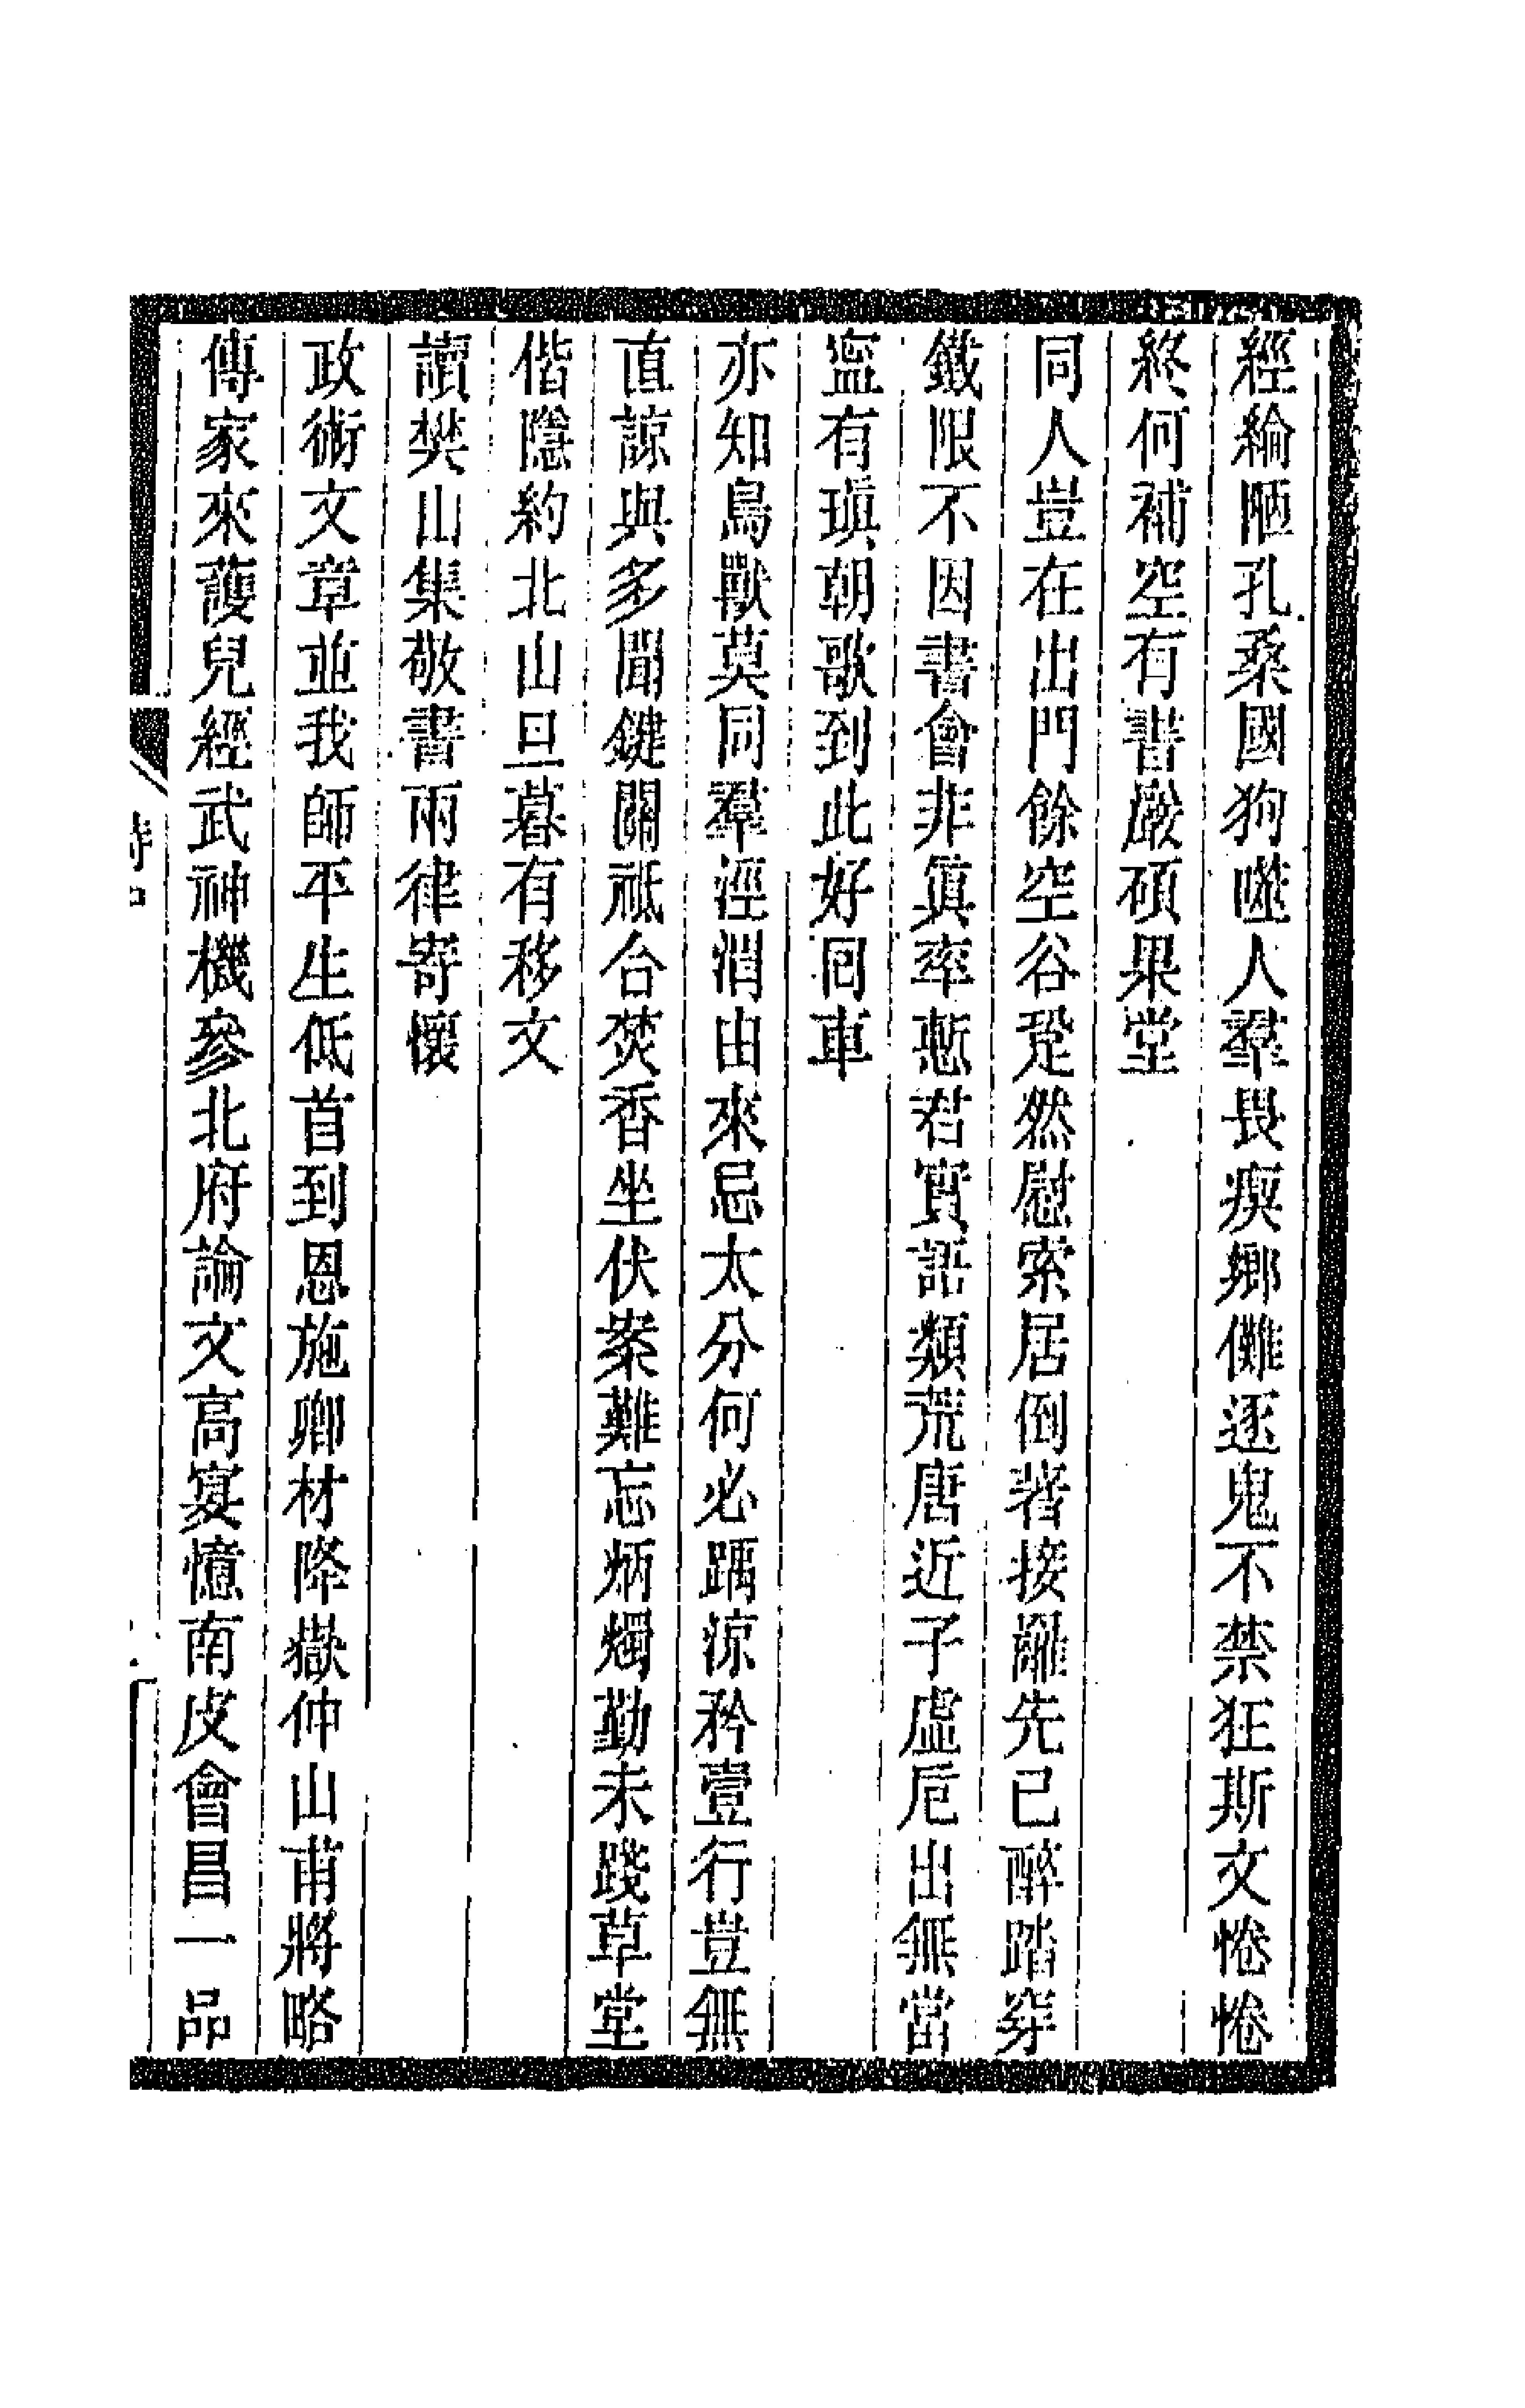 經綸陋孔桑國狗噬人羣畏瘈鄉儺逐鬼不禁狂斯文惓惓
終何補空有譜嚴碩果堂
同人豈在出門餘空谷跫然慰索居倒著接䍦先已醉踏穿
鐵限不因書會非真率慙君實語類荒唐近子虛巵出無當
寍有瑱朝歌到此好囘車
亦知鳥獸莫同羣涇渭由來忌太分何必踽涼矜壹行豈無
直諒與多聞鍵關祗合焚香坐伏案難忘炳燭勤未踐草堂
偕隱約北山旦暮有移文
讀樊山集敬書兩律寄懷
政術文章並我師平生低首到恩施卿材降嶽仲山甫將略
傳家來護兒經武神機參北府論文高宴憶南皮會昌一品